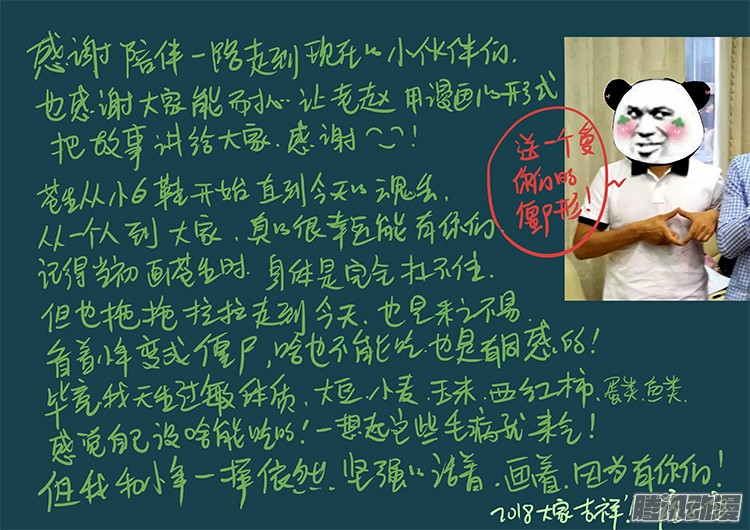 感谢陪伴一路走到现在的小伙伴们.
也感谢大家能耐心让老赵用漫画的形式
把故事讲给大家.感谢!
苍生从小6鞋开始直到今天的魂丢,
从一个人到大家,真的很幸运能有你们
记得当初画苍生时.身体是完全扛不住.
但也拖拖拉拉走到今天.也是来之不易.
看着少年变成僵尸,啥也不能吃.也是有同感的!
毕竟我天生过敏体质,大豆.小麦.玉米.西红柿.蛋类.鱼类.
感觉自己没啥能吃的!一想起这些毛病就来气!
但我和少年一择依然.坚强的活着.画着.因为有你们!
2018大家吉祥!
送一个爱
你们的
僵尸形!
腾讯动漫